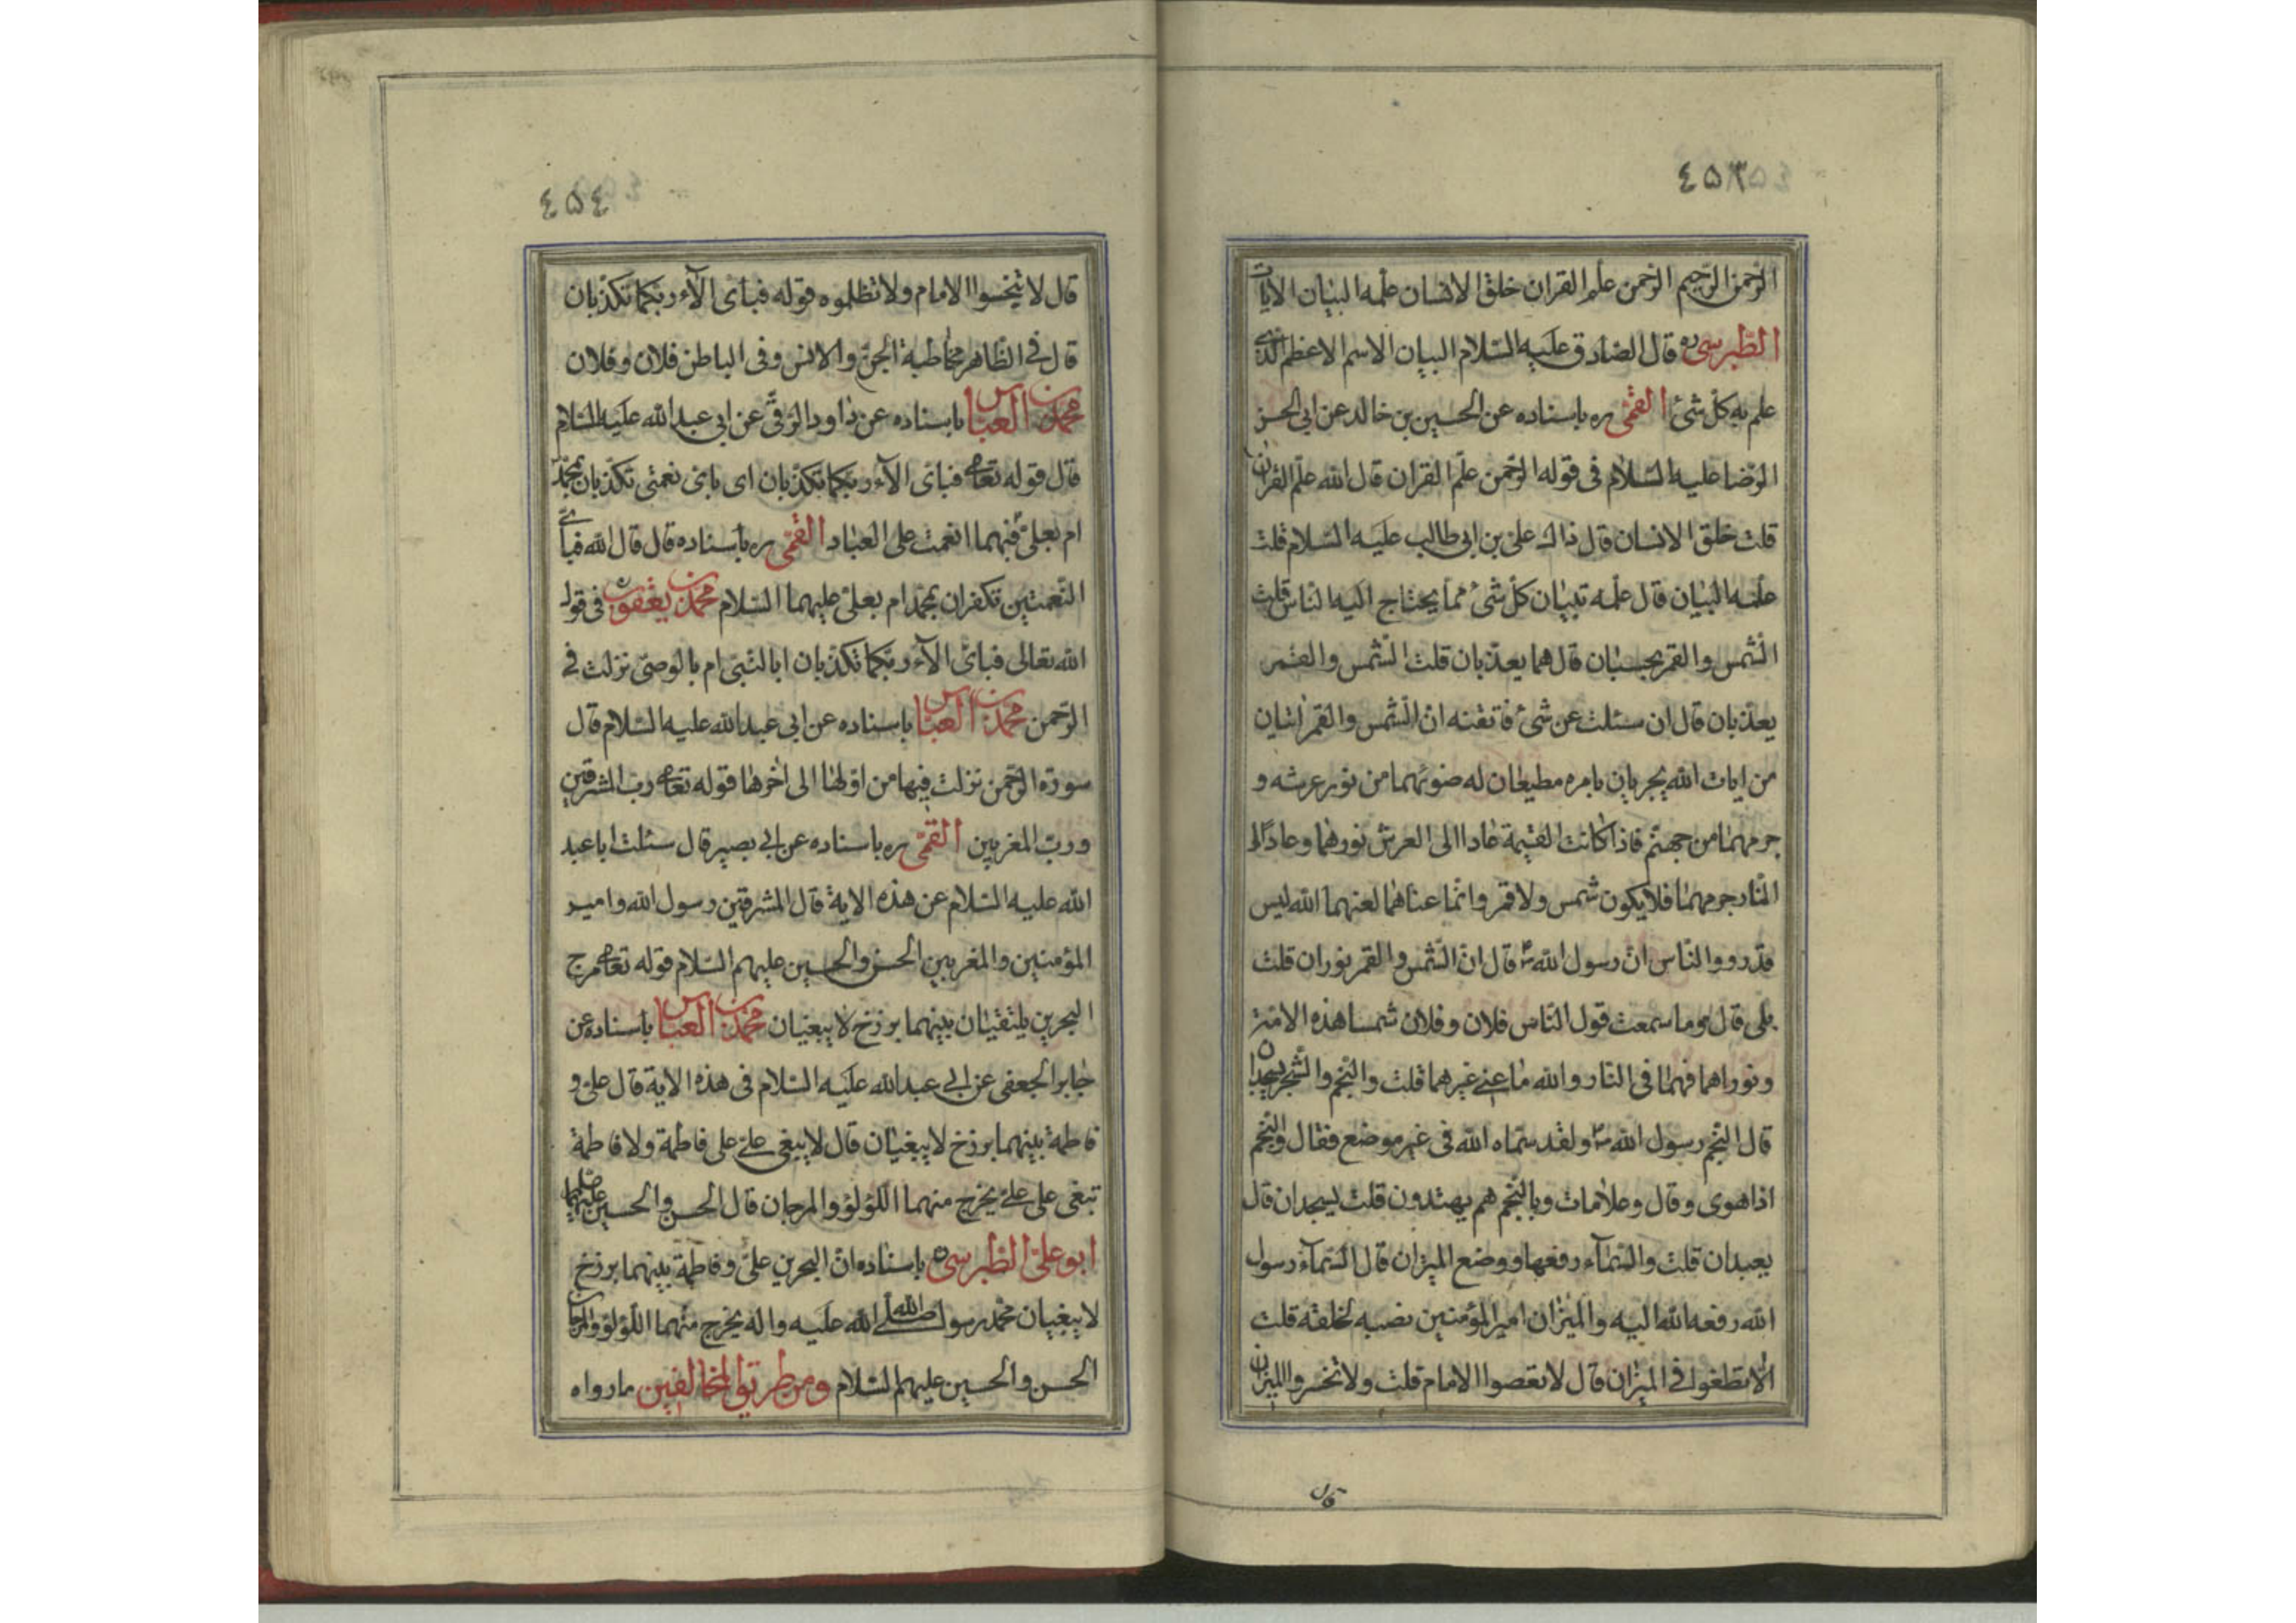 ٤٥٣
الرّحمن الرّحيم الرّحمن علّم القران خلق الانسان علّمه البيان الايات
الطّبرسى ره قال الصّادق عليه السّلام البيان الاسم الاعظم الّذى
علم به كلّ شئ القمّى ره باسناده عن الحسين بن خالد عن ابى الحسن
الرّضا عليه السّلام فى قوله الرّحمن علّم القران قال الله علّم القران
قلت خلق الانسان قال ذاك علىّ بن ابى طالب عليه السّلام قلت
علّمه البيان قال علّمه تبيان كلّ شئ ممّا يحتاج اليه النّاس قلت
الشّمس والقمر بحسبان قال هما يعذّبان قلت الشّمس والقمر
يعذّبان قال ان سئلت عن شئ فاتقنه انّ الشّمس والقمر ايتان
من ايات الله يجريان بامره مطيعان له ضوئهما من نور عرشه و
جرمهما من جهنّم فاذا كانت القيمة عادا الى العرش نورهما وعاد الى
النّار جرمهما فلا يكون شمس ولا قمر وانّما عناهما لعنهما الله ليس
قد رووا النّاس انّ رسول الله ص قال انّ الشّمس والقمر نوران قلت
بلى قال وما سمعت قول النّاس فلان وفلان شمسا هذه الامّة
ونوراهما فهما فى النّار والله ما عنى غيرهما قلت والنّجم والشّجر يسجدان
قال النّجم رسول الله ص ولقد سمّاه الله فى غير موضع فقال والنّجم
اذا هوى وقال وعلامات وبالنّجم هم يهتدون قلت يسجدان قال
يعبدان قلت والسّمآء رفعها ووضع الميزان قال السّمآء رسول
الله رفعه الله اليه والميزان امير المؤمنين نصبه لخلقه قلت
الّا تطغوا فى الميزان قال لا تعصوا الامام قلت ولا تخسروا الميزان
٤٥٤
قال لا تبخسوا الامام ولا تظلموه قوله فباىّ الآء ربّكما تكذّبان
قال فى الظّاهر مخاطبة الجنّ والانس وفى الباطن فلان وفلان
محمّد بن العبّاس باسناده عن داود الرّقى عن ابى عبد الله عليه السّلام
قال قوله تعالى فباىّ الآء ربّكما تكذّبان اى باىّ نعمتى تكذّبان بمحمّد
ام بعلىّ فبهما انعمت على العباد القمّى ره باسناده قال قال الله فباىّ
النّعمتين تكفران بمحمّد ام بعلىّ عليهما السّلام محمّد بن يعقوب ره فى قول
الله تعالى فباىّ الآء ربّكما تكذّبان ابالنّبىّ ام بالوصىّ نزلت فى
الرّحمن محمّد بن العبّاس باسناده عن ابى عبد الله عليه السّلام قال
سورة الرّحمن نزلت فيها من اوّلها الى اخرها قوله تعالى ربّ المشرقين
وربّ المغربين القمّى ره باسناده عن ابى بصير قال سئلت ابا عبد
الله عليه السّلام عن هذه الاية قال المشرقين رسول الله وامير
المؤمنين والمغربين الحسن والحسين عليهم السّلام قوله تعالى مرج
البحرين يلتقيان بينهما برزخ لا يبغيان محمّد بن العبّاس باسناده عن
جابر الجعفى عن ابى عبد الله عليه السّلام فى هذه الاية قال علىّ و
فاطمة بينهما برزخ لا يبغيان قال لا يبغى علىّ على فاطمة ولا فاطمة
تبغى على علىّ يخرج منهما اللّؤلؤ والمرجان قال الحسن والحسين
ابو علىّ الطّبرسى ره باسناده انّ البحرين علىّ وفاطمة بينهما برزخ
لا يبغيان محمّد رسول الله صلّى الله عليه واله يخرج منهما اللّؤلؤ والمرجان
الحسن والحسين عليهم السّلام ومن طريق المخالفين ما رواه